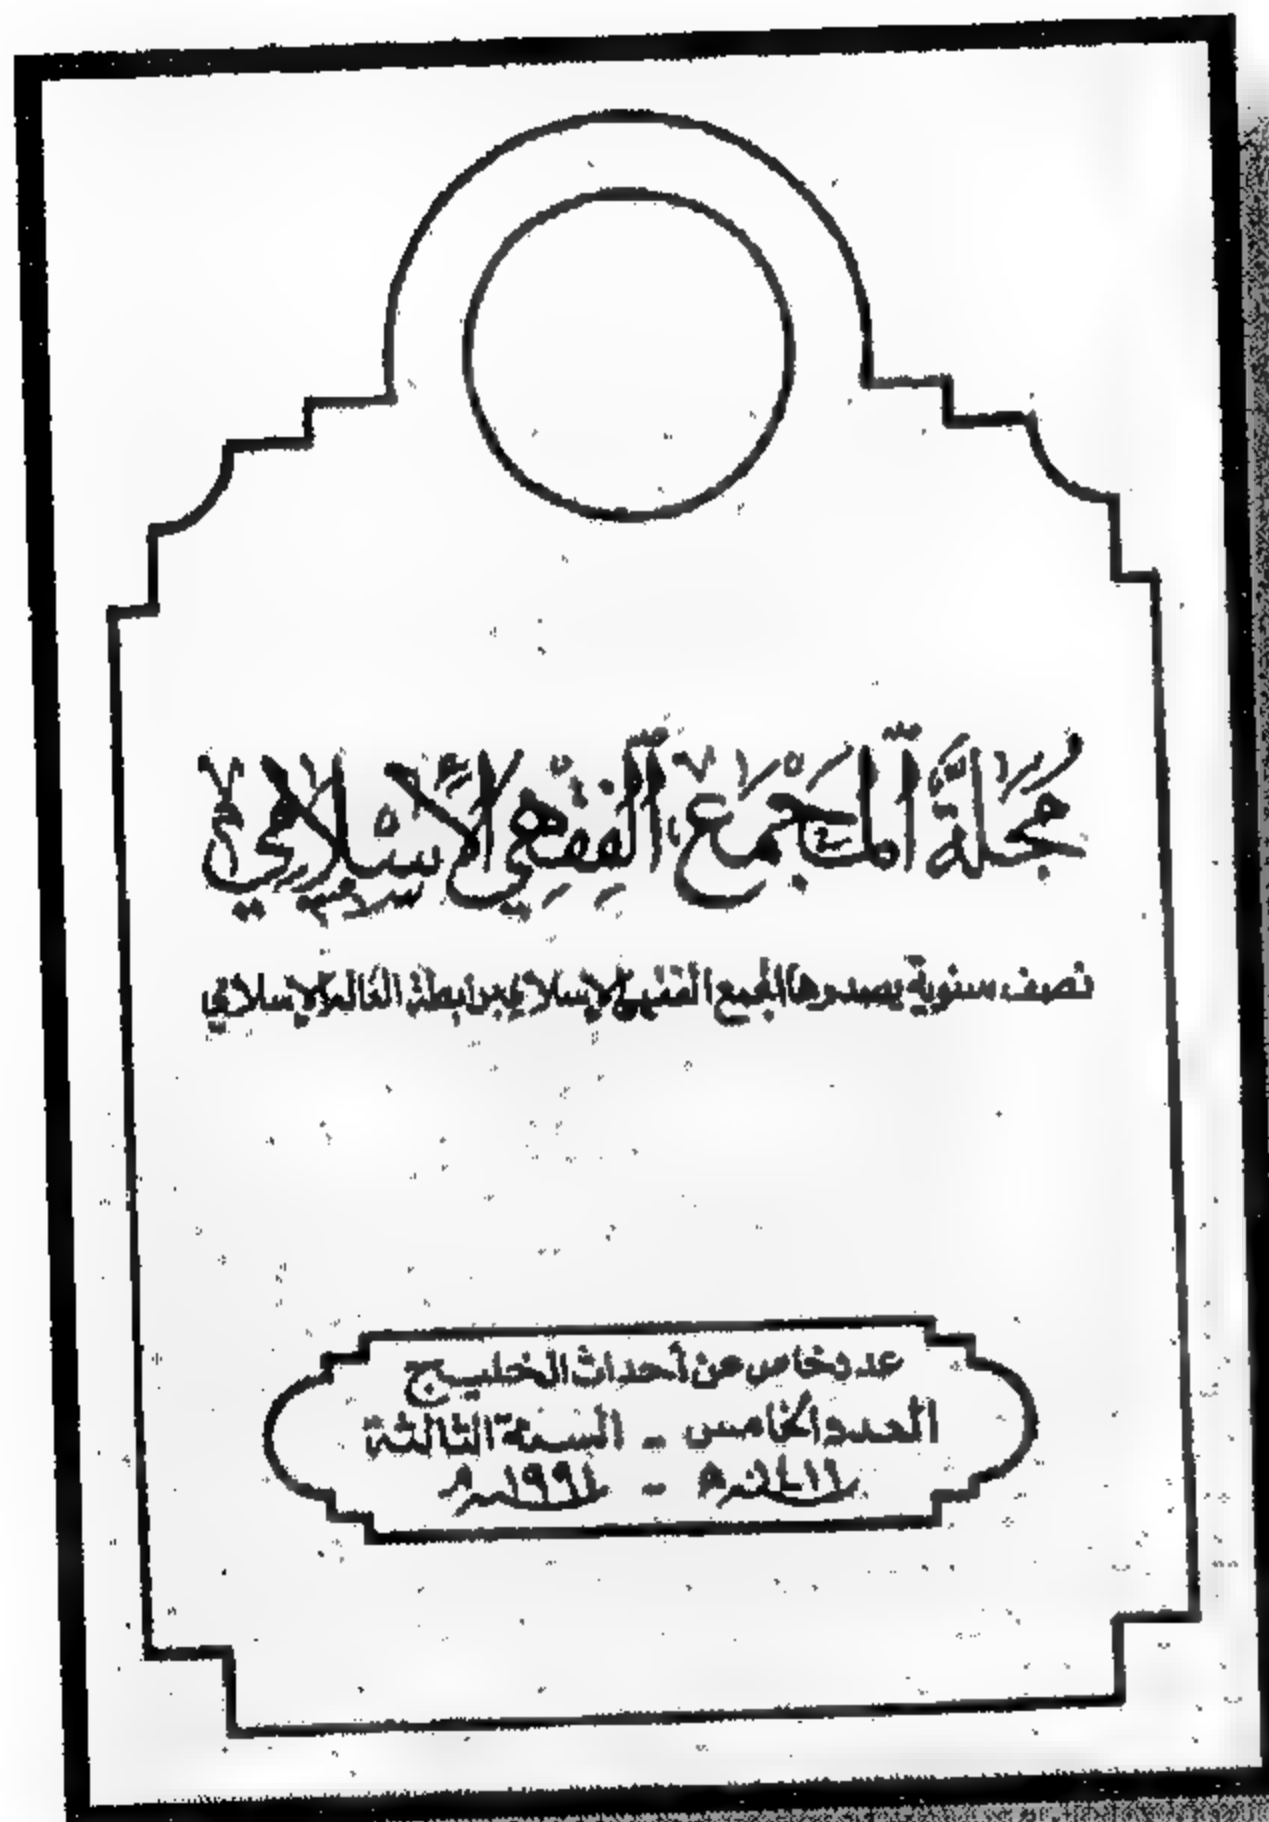 مَجَلَّةُ ٱلْمَجْمَعِ ٱلْفِقْهِيِّ الْإِسْلَامِيِّ
نصف سنوية يصدرها المجمع الفقهي الإسلامي برابطة العالم الإسلامي
عدد خاص عن أحداث الخليج
العدد الخامس - السنة الثالثة
١٤١١هـ - ١٩٩١م